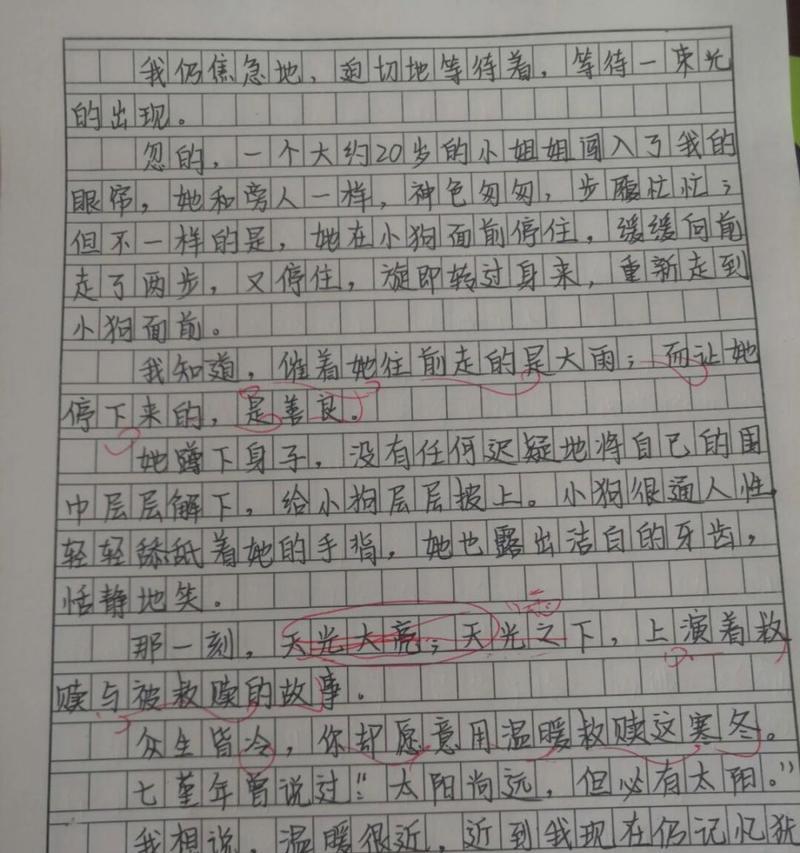 我仍焦急地、迫切地等待着，等待一束光
的出现。
忽的，一个大约20岁的小姐姐闯入了我的
眼帘，她和旁人一样，神色匆匆，步履忙忙；
但不一样的是，她在小狗面前停住，缓缓向前
走了两步，又停住，旋即转过身来，重新走到
小狗面前。
我知道，催着她往前走的是大雨；而让她
停下来的，是善良。
她蹲下身子，没有任何迟疑地将自己的围
巾层层解下，给小狗层层披上。小狗很通人性，
轻轻舔舐着她的手指，她也露出洁白的牙齿，
恬静地笑。
那一刻，天光大亮；天光之下，上演着救
赎与被救赎的故事。
众生皆冷，你却愿意用温暖救赎这寒冬。
七堇年曾说过：“太阳尚远，但必有太阳。”
我想说，温暖很近，近到我现在仍记忆犹